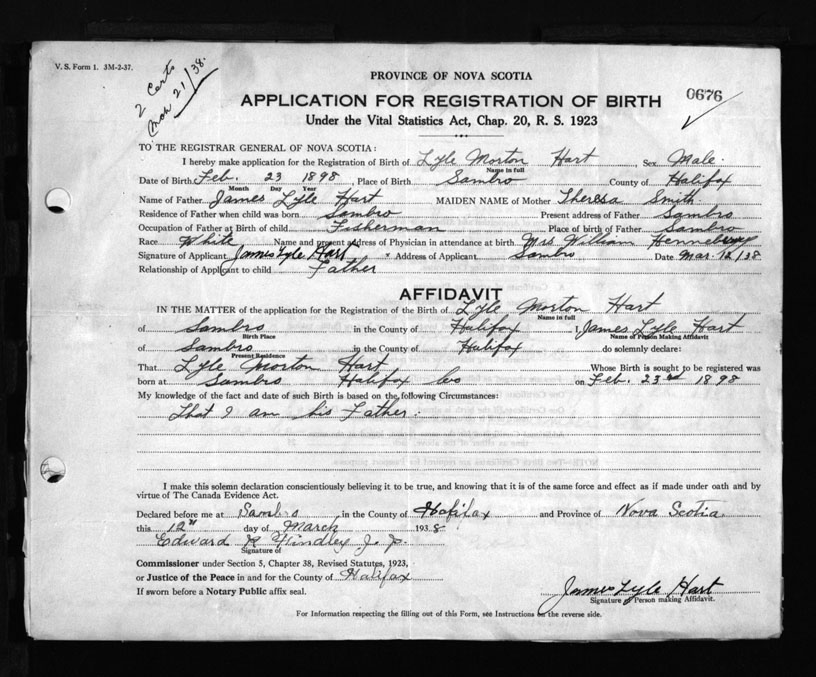 V. S. Form 1. 3M-2-37.
2 Certs
Mch 21/38.
PROVINCE OF NOVA SCOTIA
APPLICATION FOR REGISTRATION OF BIRTH
0676
Under the Vital Statistics Act, Chap. 20, R. S. 1923
TO THE REGISTRAR GENERAL OF NOVA SCOTIA:
I hereby make application for the Registration of Birth of Lyle Morton Hart, Sex Male.
Name in full
Date of Birth Feb. 23 1898, Place of Birth Sambro County of Halifax
Month Day Year
Name of Father James Lyle Hart MAIDEN NAME of Mother Theresa Smith.
Residence of Father when child was born Sambro Present address of Father Sambro
Occupation of Father at Birth of child Fisherman Place of birth of Father Sambro
Race White Name and present address of Physician in attendance at birth Mrs William Henneberry
Signature of Applicant James Lyle Hart * Address of Applicant Sambro Date Mar. 12/38
Relationship of Applicant to child Father
AFFIDAVIT
IN THE MATTER of the application for the Registration of the Birth of Lyle Morton Hart
Name in full
of Sambro in the County of Halifax I, James Lyle Hart
Birth Place Name of Person Making Affidavit
of Sambro in the County of Halifax do solemnly declare:
Present Residence
That Lyle Morton Hart Whose Birth is sought to be registered was
born at Sambro Halifax Co on Feb. 23rd 1898
My knowledge of the fact and date of such Birth is based on the following Circumstances:
That I am his Father.
I make this solemn declaration conscientiously believing it to be true, and knowing that it is of the same force and effect as if made under oath and by
virtue of The Canada Evidence Act.
Declared before me at Sambro in the County of Halifax and Province of Nova Scotia
this 12th day of March 1938
Edward R Findley J. P.
Signature of
Commissioner under Section 5, Chapter 38, Revised Statutes, 1923,
or Justice of the Peace in and for the County of Halifax
If sworn before a Notary Public affix seal.
James Lyle Hart
Signature of Person making Affidavit.
For Information respecting the filling out of this Form, see Instructions on the reverse side.